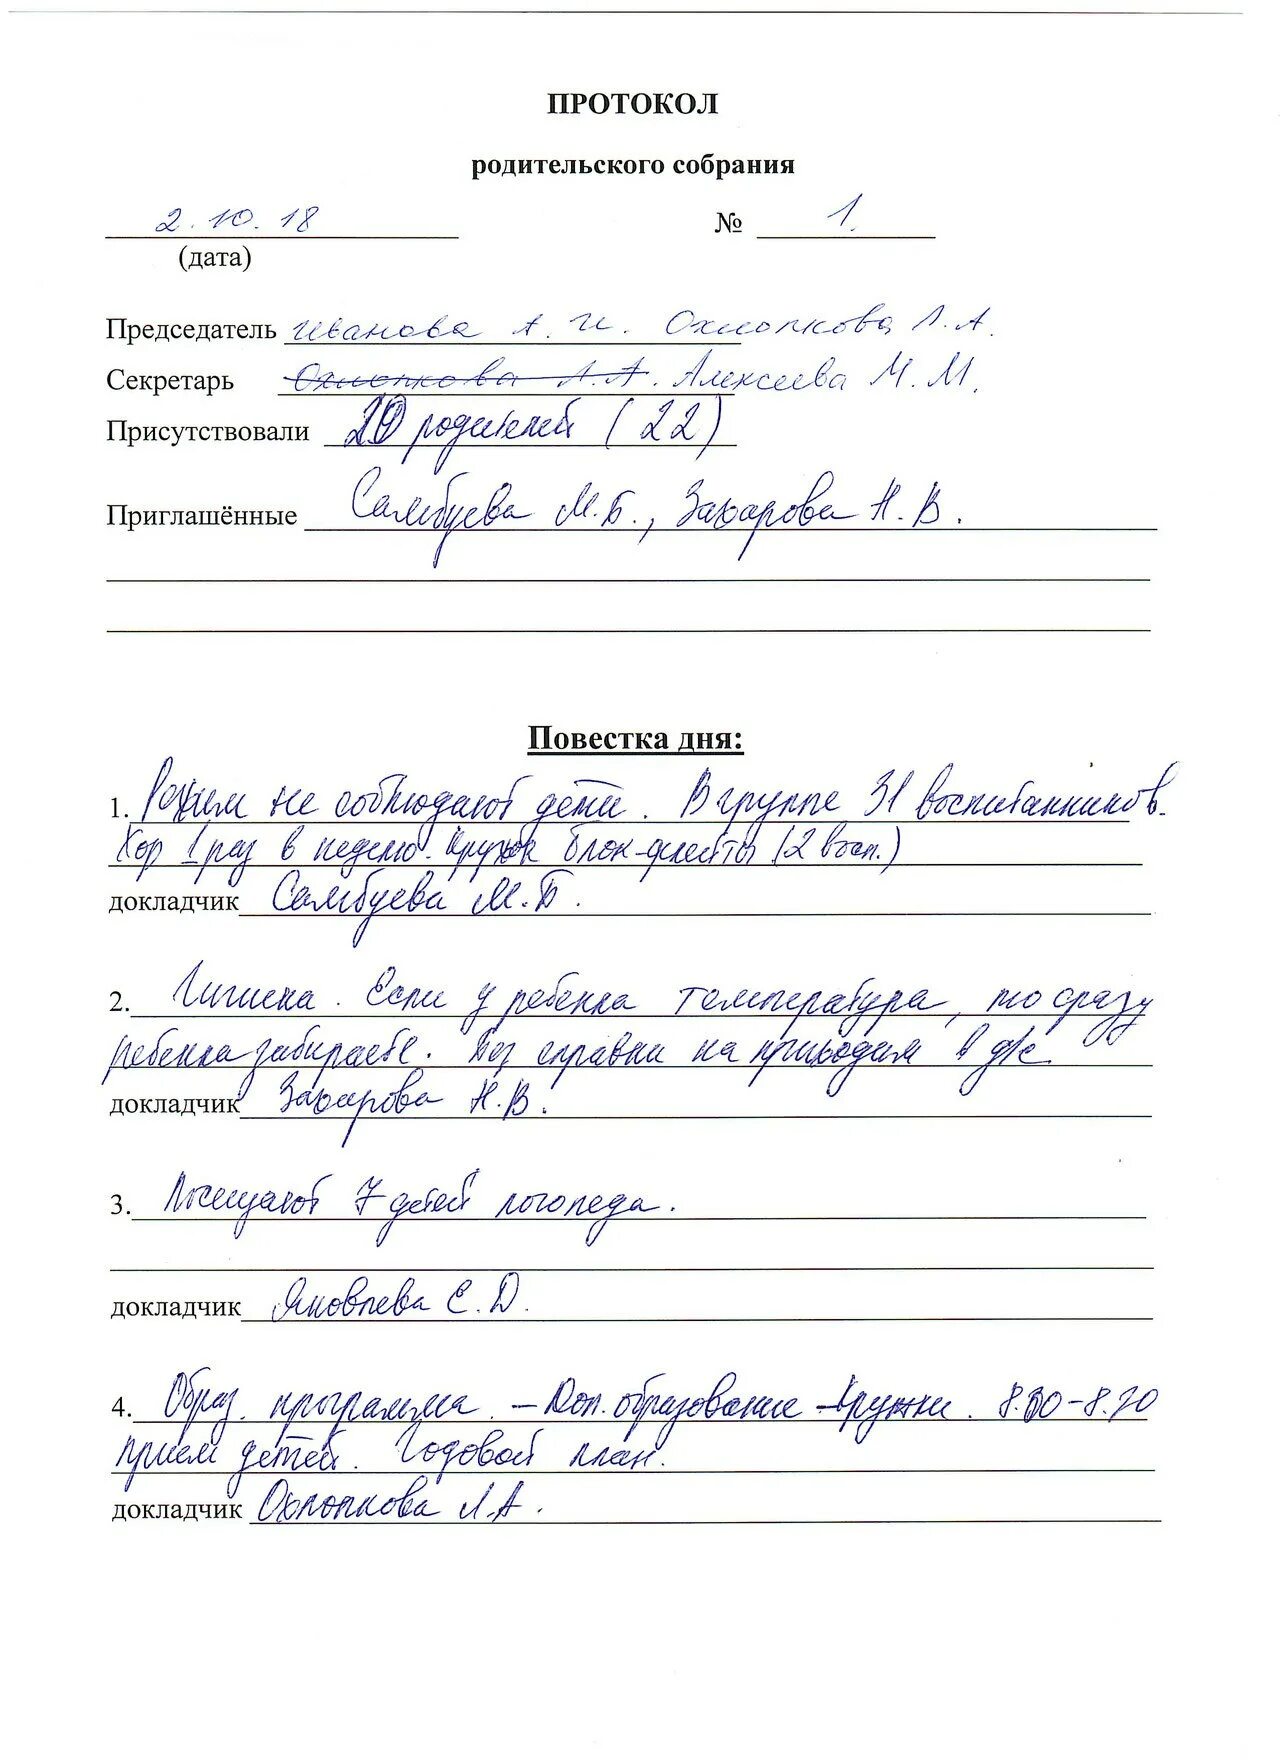 ПРОТОКОЛ
родительского собрания
2.10.18 № 1.
(дата)
Председатель Иванова А.И. Охлопкова Л.А.
Секретарь Охлопкова Л.А. Алексеева М.М.
Присутствовали 20 родителей (22)
Приглашённые Самбуева М.Б., Захарова Н.В.
Повестка дня:
1. Режим не соблюдают дети. В группе 31 воспитанников.
Хор 1 раз в неделю. Кружок блок-флейты (2 восп.)
докладчик Самбуева М.Б.
2. Гигиена. Если у ребенка температура, то сразу
ребенка забираете. Без справки не приходим в д/с
докладчик Захарова Н.В.
3. Посещают 7 детей логопеда.
докладчик Яковлева Е.Д.
4. Образ. программа. – Доп. образование – кружки.
прием детей. Годовой план.
докладчик Охлопкова Л.А.